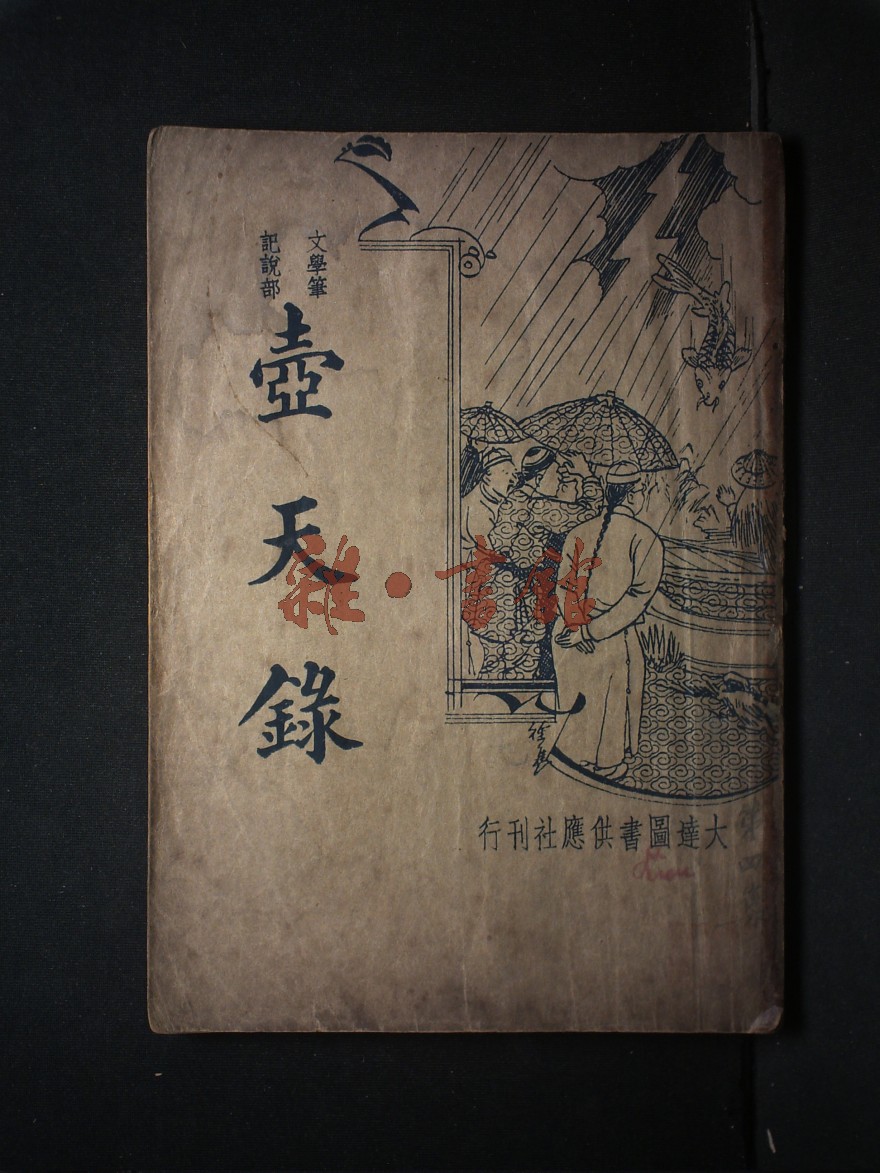 文學筆
記說部
壺天錄
大達圖書供應社刊行
雜·書館